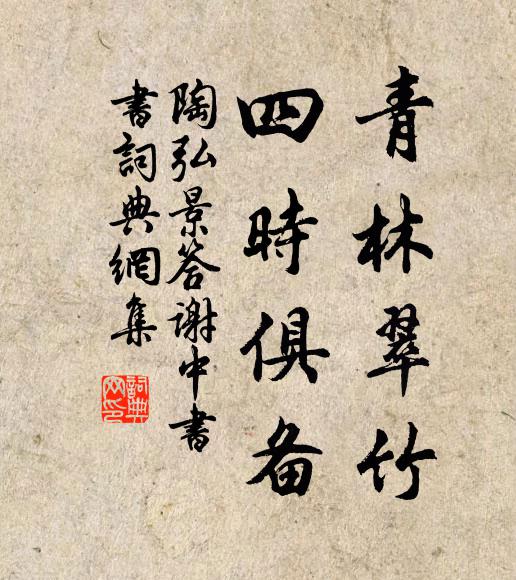 青林翠竹
四時俱备
陶弘景答谢中書
書詞典網集
詞典网印